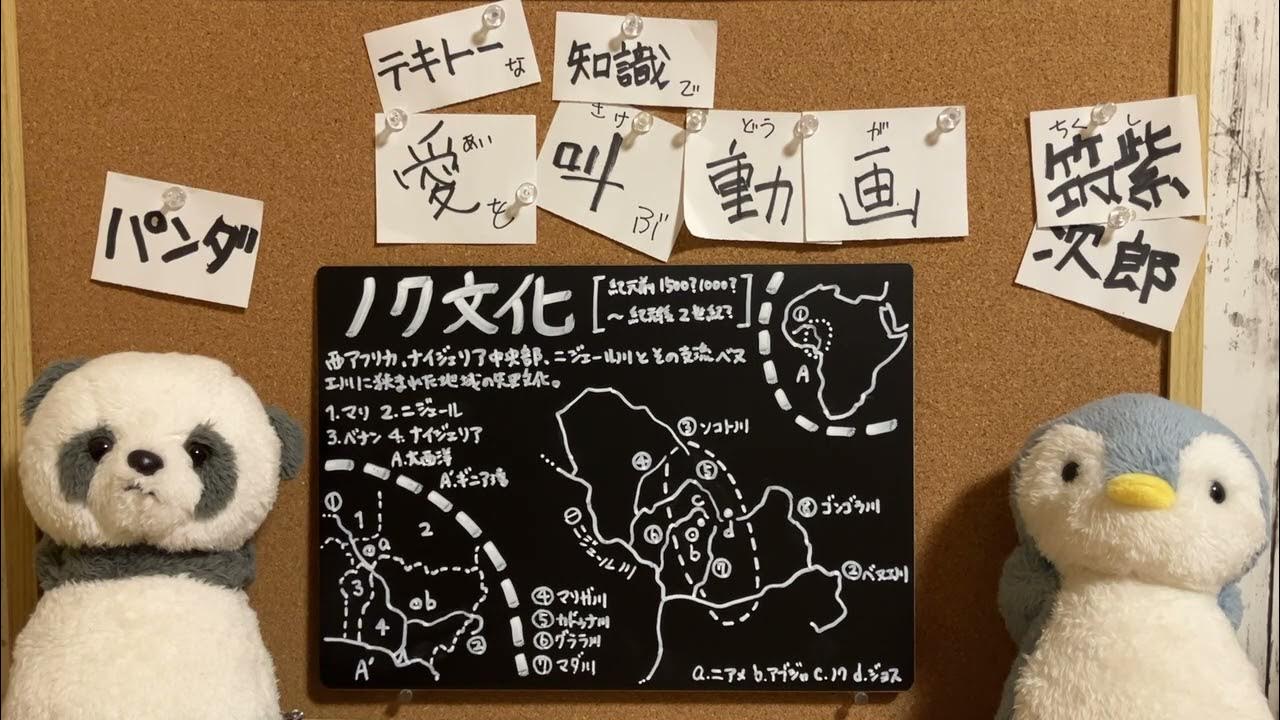 テキトーな
知識で
愛あいを
叫さけぶ
動どう
画が
筑紫ちくし
次郎
パンダ
ノク文化
[紀元前1500?1000?
〜紀元後2世紀?]
西アフリカ、ナイジェリア中央部、ニジェール川とその支流ベヌ
エ川に挟まれた地域の
1.マリ 2.ニジェール
3.ベナン 4.ナイジェリア
A.大西洋
A'.ギニア湾
① 1 2 a 3 4 b ② A'
① A
③ソコト川
④ ⑤ c d ⑥ b ⑦
⑧ゴンゴラ川
①ニジェール川
②ベヌエ川
④マリガ川
⑤カドゥナ川
⑥グララ川
⑦マダ川
a.ニアメ b.アブジャ c.ノク d.ジョス